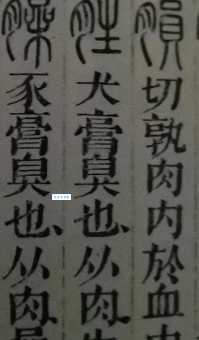 䐣切孰肉内於血
胜犬膏臭也、从肉、
臊豕膏臭也、从肉、